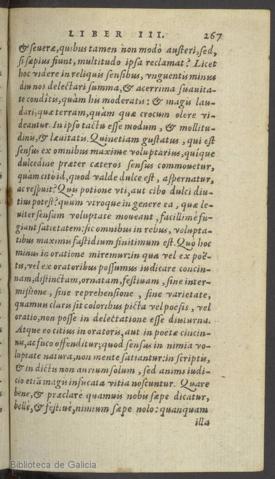 LIBER III. 267
& seueræ, quibus tamen non modò austeri, sed,
si sæpius fiunt, multitudo ipsa reclamat? Licet
hoc videre in reliquis sensibus, vnguentis minus
diu nos delectari summa, & acerrima suauita-
te conditis, quàm his moderatis: & magis lau-
dari, quæ terram, quàm quæ crocum olere vi-
deantur. In ipso tactu esse modum, & mollitu-
dinis, & læuitatis. Quinetiam gustatus, qui est
sensus ex omnibus maximè voluptarius, quique
dulcedine præter cæteros sensus commouetur,
quàm citò id, quod valde dulce est, aspernatur,
ac respuit? Quis potione vti, aut cibo dulci diu-
tius potest? quum vtroque in genere ea, quæ le-
uiter sensum voluptate moueant, facillimè fu-
giant satietatem: sic omnibus in rebus, volupta-
tibus maximis fastidium finitimum est. Quo hoc
minus in oratione miremur: in qua vel ex poë-
tis, vel ex oratoribus possumus iudicare concin-
nam, distinctam, ornatam, festiuam, sine inter-
missione, sine reprehensione, sine varietate,
quamuis claris sit coloribus picta vel poesis, vel
oratio, non posse in delectatione esse diuturna.
Atque eo citius in oratoris, aut in poetæ cincin-
nis, ac fuco offenditur; quòd sensus in nimia vo-
luptate natura, non mente satiantur: in scriptis,
& in dictis non aurium solum, sed animi iudi-
cio etiã magis infucata vitia noscuntur. Quare
bene, & præclarè quamuis nobis sæpe dicatur,
bellè, & festiuè, nimium sæpe nolo: quanquam
illa
Biblioteca de Galicia